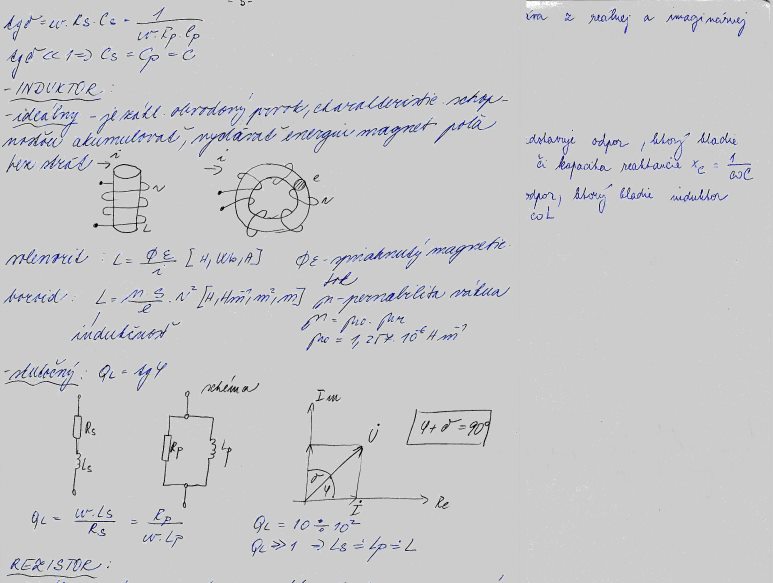 - 5 -
tgδ = w. Rs. Cs = 1 / w.Rp.Cp
tgδ << 1 => Cs = Cp = C
- INDUKTOR :
- ideálny - je zákl. obvodový prvok, charakteristic. schop-
nosťou akumulovať, vydávať energiu magnet. poľa
bez strát
i
N
L
i
e
N
solenoid : L = ΦΣ / i [H, Wb, A]
ΦΣ - spriahnutý magnetic.
tok
toroid : L = μ. S / l . N² [H, Hm⁻¹, m², m]
μ - permabilita vákua
μ = μo. μr
indukčnosť
μo = 1,257. 10⁻⁶ H m⁻¹
- skutočný : QL = tgφ
schéma
Rs
Ls
Rp
Lp
Im
U
δ
φ
I
Re
φ + δ = 90°
QL = w. Ls / Rs = Rp / w. Lp
QL = 10 ÷ 10²
QL >> 1 => Ls ≐ Lp ≐ L
REZISTOR :
z reálnej a imaginárnej
odpor, ktorý kladie
či kapacita reaktancie xC = 1 / ωC
ktorý kladie induktor
ωL